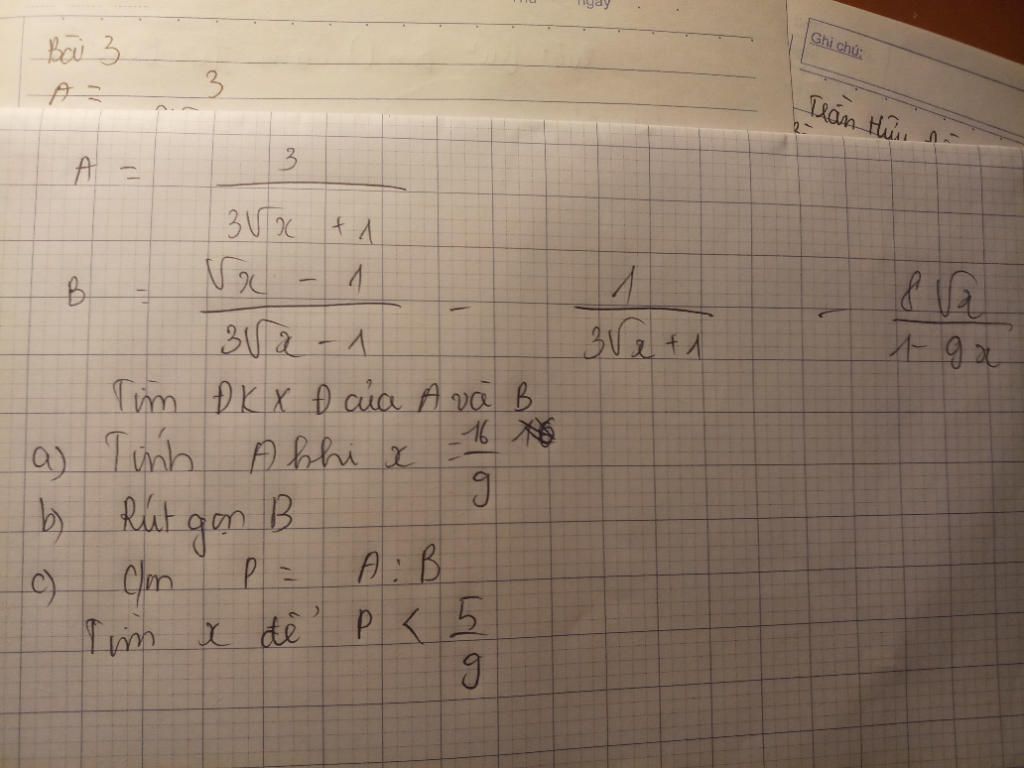 ngày
Bài 3
Ghi chú:
A = 3
Trần Hữu
A = 3/(3√x + 1)
B = (√x - 1)/(3√x - 1) - 1/(3√x + 1) - 8√x/(1 - 9x)
Tìm ĐKXĐ của A và B
a) Tính A khi x = 16/9
b) Rút gọn B
c) C/m P = A : B
Tìm x để P < 5/9